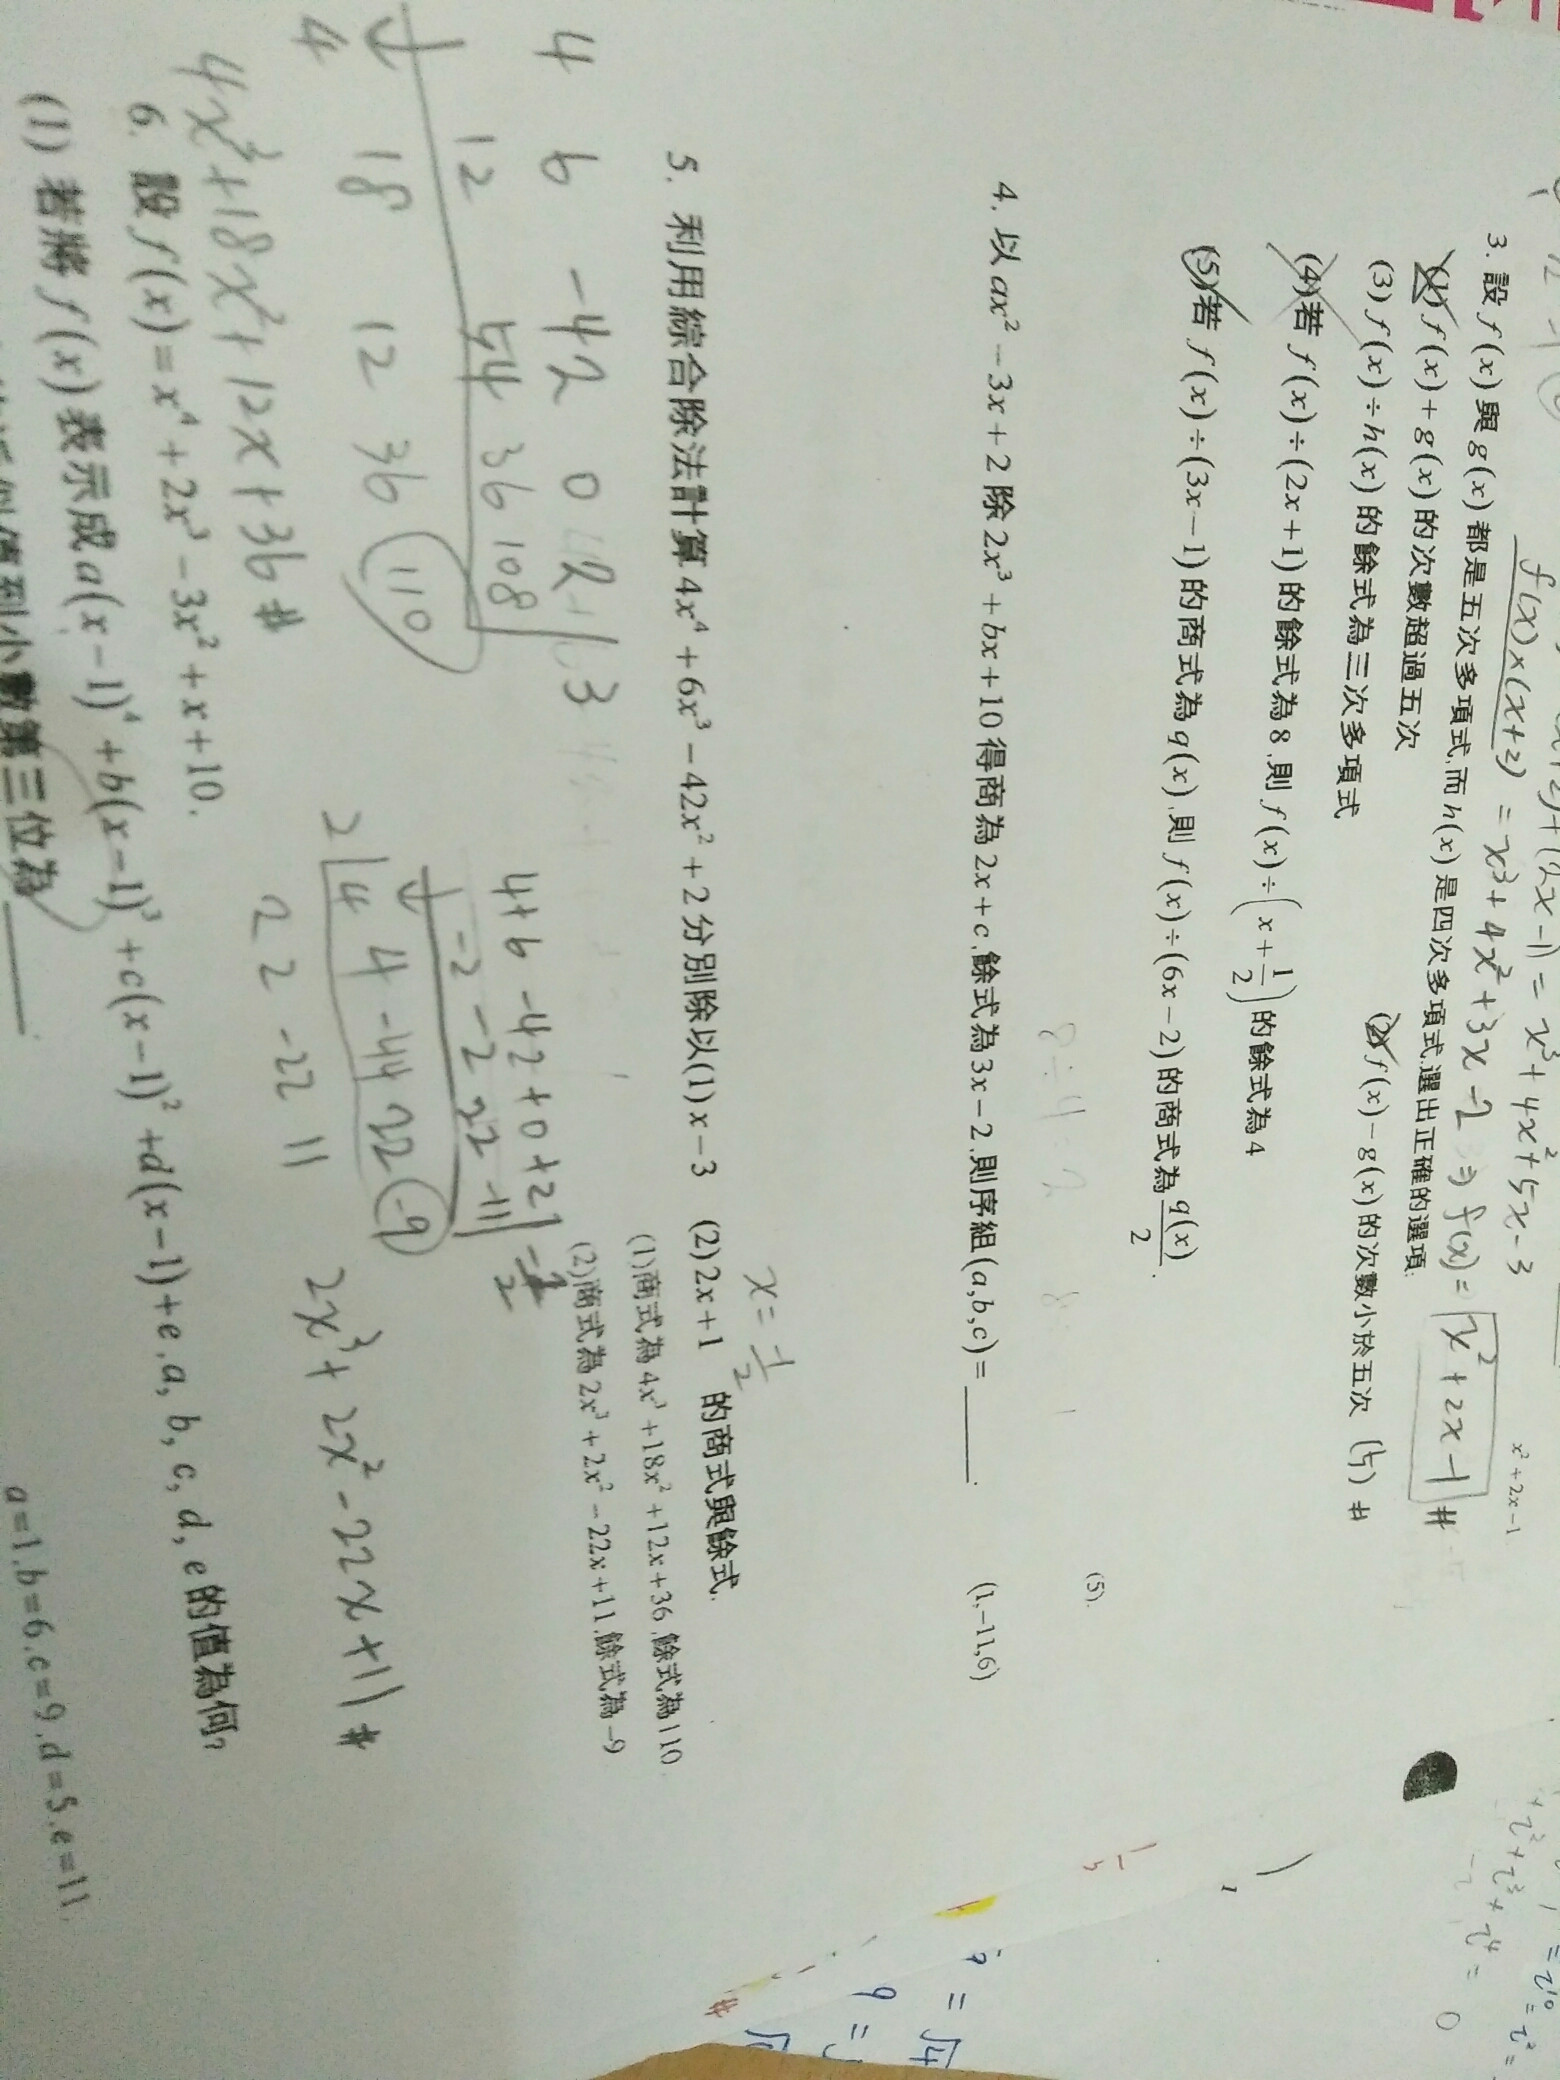 f(x)×(x+2) = x³+4x²+3x-2 ⇒ f(x) = x²+2x-1 #
x²+2x-1
3. 設 f(x) 與 g(x) 都是五次多項式,而 h(x) 是四次多項式,選出正確的選項:
(1) f(x)+g(x) 的次數超過五次
(2) f(x)-g(x) 的次數小於五次 (5) #
(3) f(x)÷h(x) 的餘式為三次多項式
(4) 若 f(x)÷(2x+1) 的餘式為 8,則 f(x)÷(x+1/2) 的餘式為 4
(5) 若 f(x)÷(3x-1) 的商式為 q(x),則 f(x)÷(6x-2) 的商式為 q(x)/2.
(5).
4. 以 ax²-3x+2 除 2x³+bx+10 得商為 2x+c,餘式為 3x-2,則序組 (a,b,c)= ______.
(1,-11,6)
x=-1/2
5. 利用綜合除法計算 4x⁴+6x³-42x²+2 分別除以 (1) x-3 (2) 2x+1 的商式與餘式.
(1)商式為 4x³+18x²+12x+36,餘式為110.
(2)商式為 2x³+2x²-22x+11,餘式為-9
4 6 -42 0 +2 | 3
12 54 36 108
4 18 12 36 110
4x³+18x²+12x+36 #
4+6-42+0+2 | -1/2
-2 -2 22 -11
2 | 4 4 -44 22 -9
2 2 -22 11
2x³+2x²-22x+11 #
6. 設 f(x)=x⁴+2x³-3x²+x+10.
(1) 若將 f(x) 表示成 a(x-1)⁴+b(x-1)³+c(x-1)²+d(x-1)+e,a, b, c, d, e 的值為何?
a=1.b=6.c=9.d=5.e=11.
小數第三位為 ______.